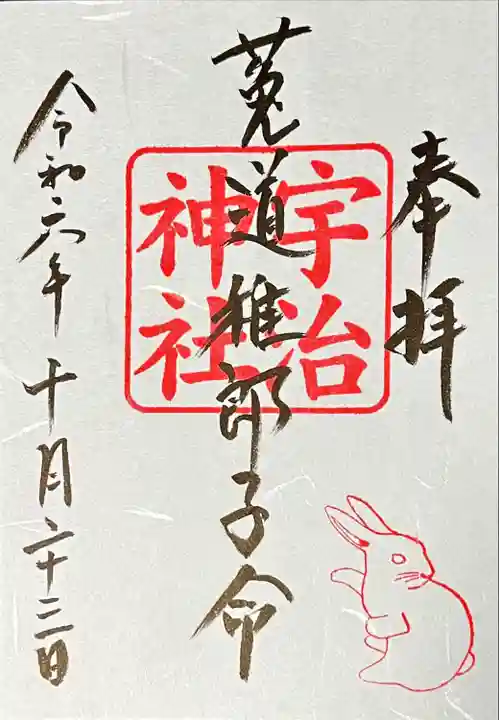 奉拝
宇治
神社
菟道稚郎子命
令和六年十月二十三日